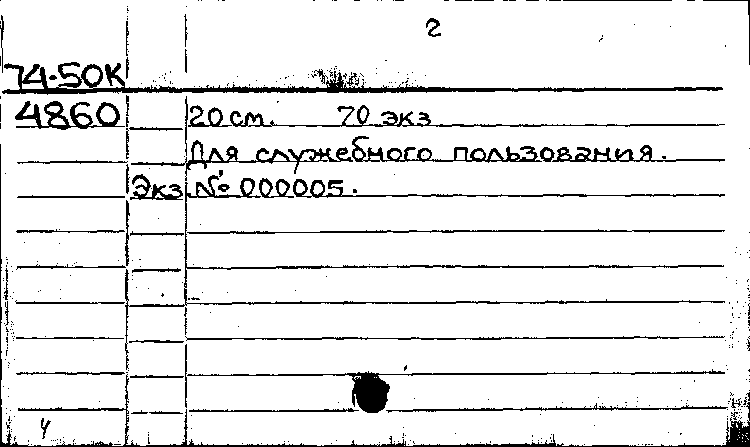 2
74-50К
4860 20 см. 70 экз
Для служебного пользования.
Экз № 000005.